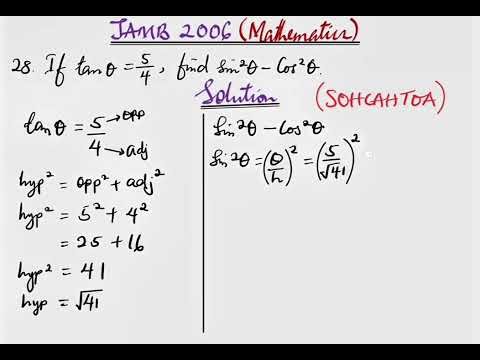 JAMB 2006 (Mathematics)
28. If tanθ = 5/4, find Sin²θ - Cos²θ.
Solution
(SOHCAHTOA)
tanθ = 5/4 → opp → adj
hyp² = opp² + adj²
hyp² = 5² + 4²
= 25 + 16
hyp² = 41
hyp = √41
Sin²θ - Cos²θ
Sin²θ = (O/h)² = (5/√41)²